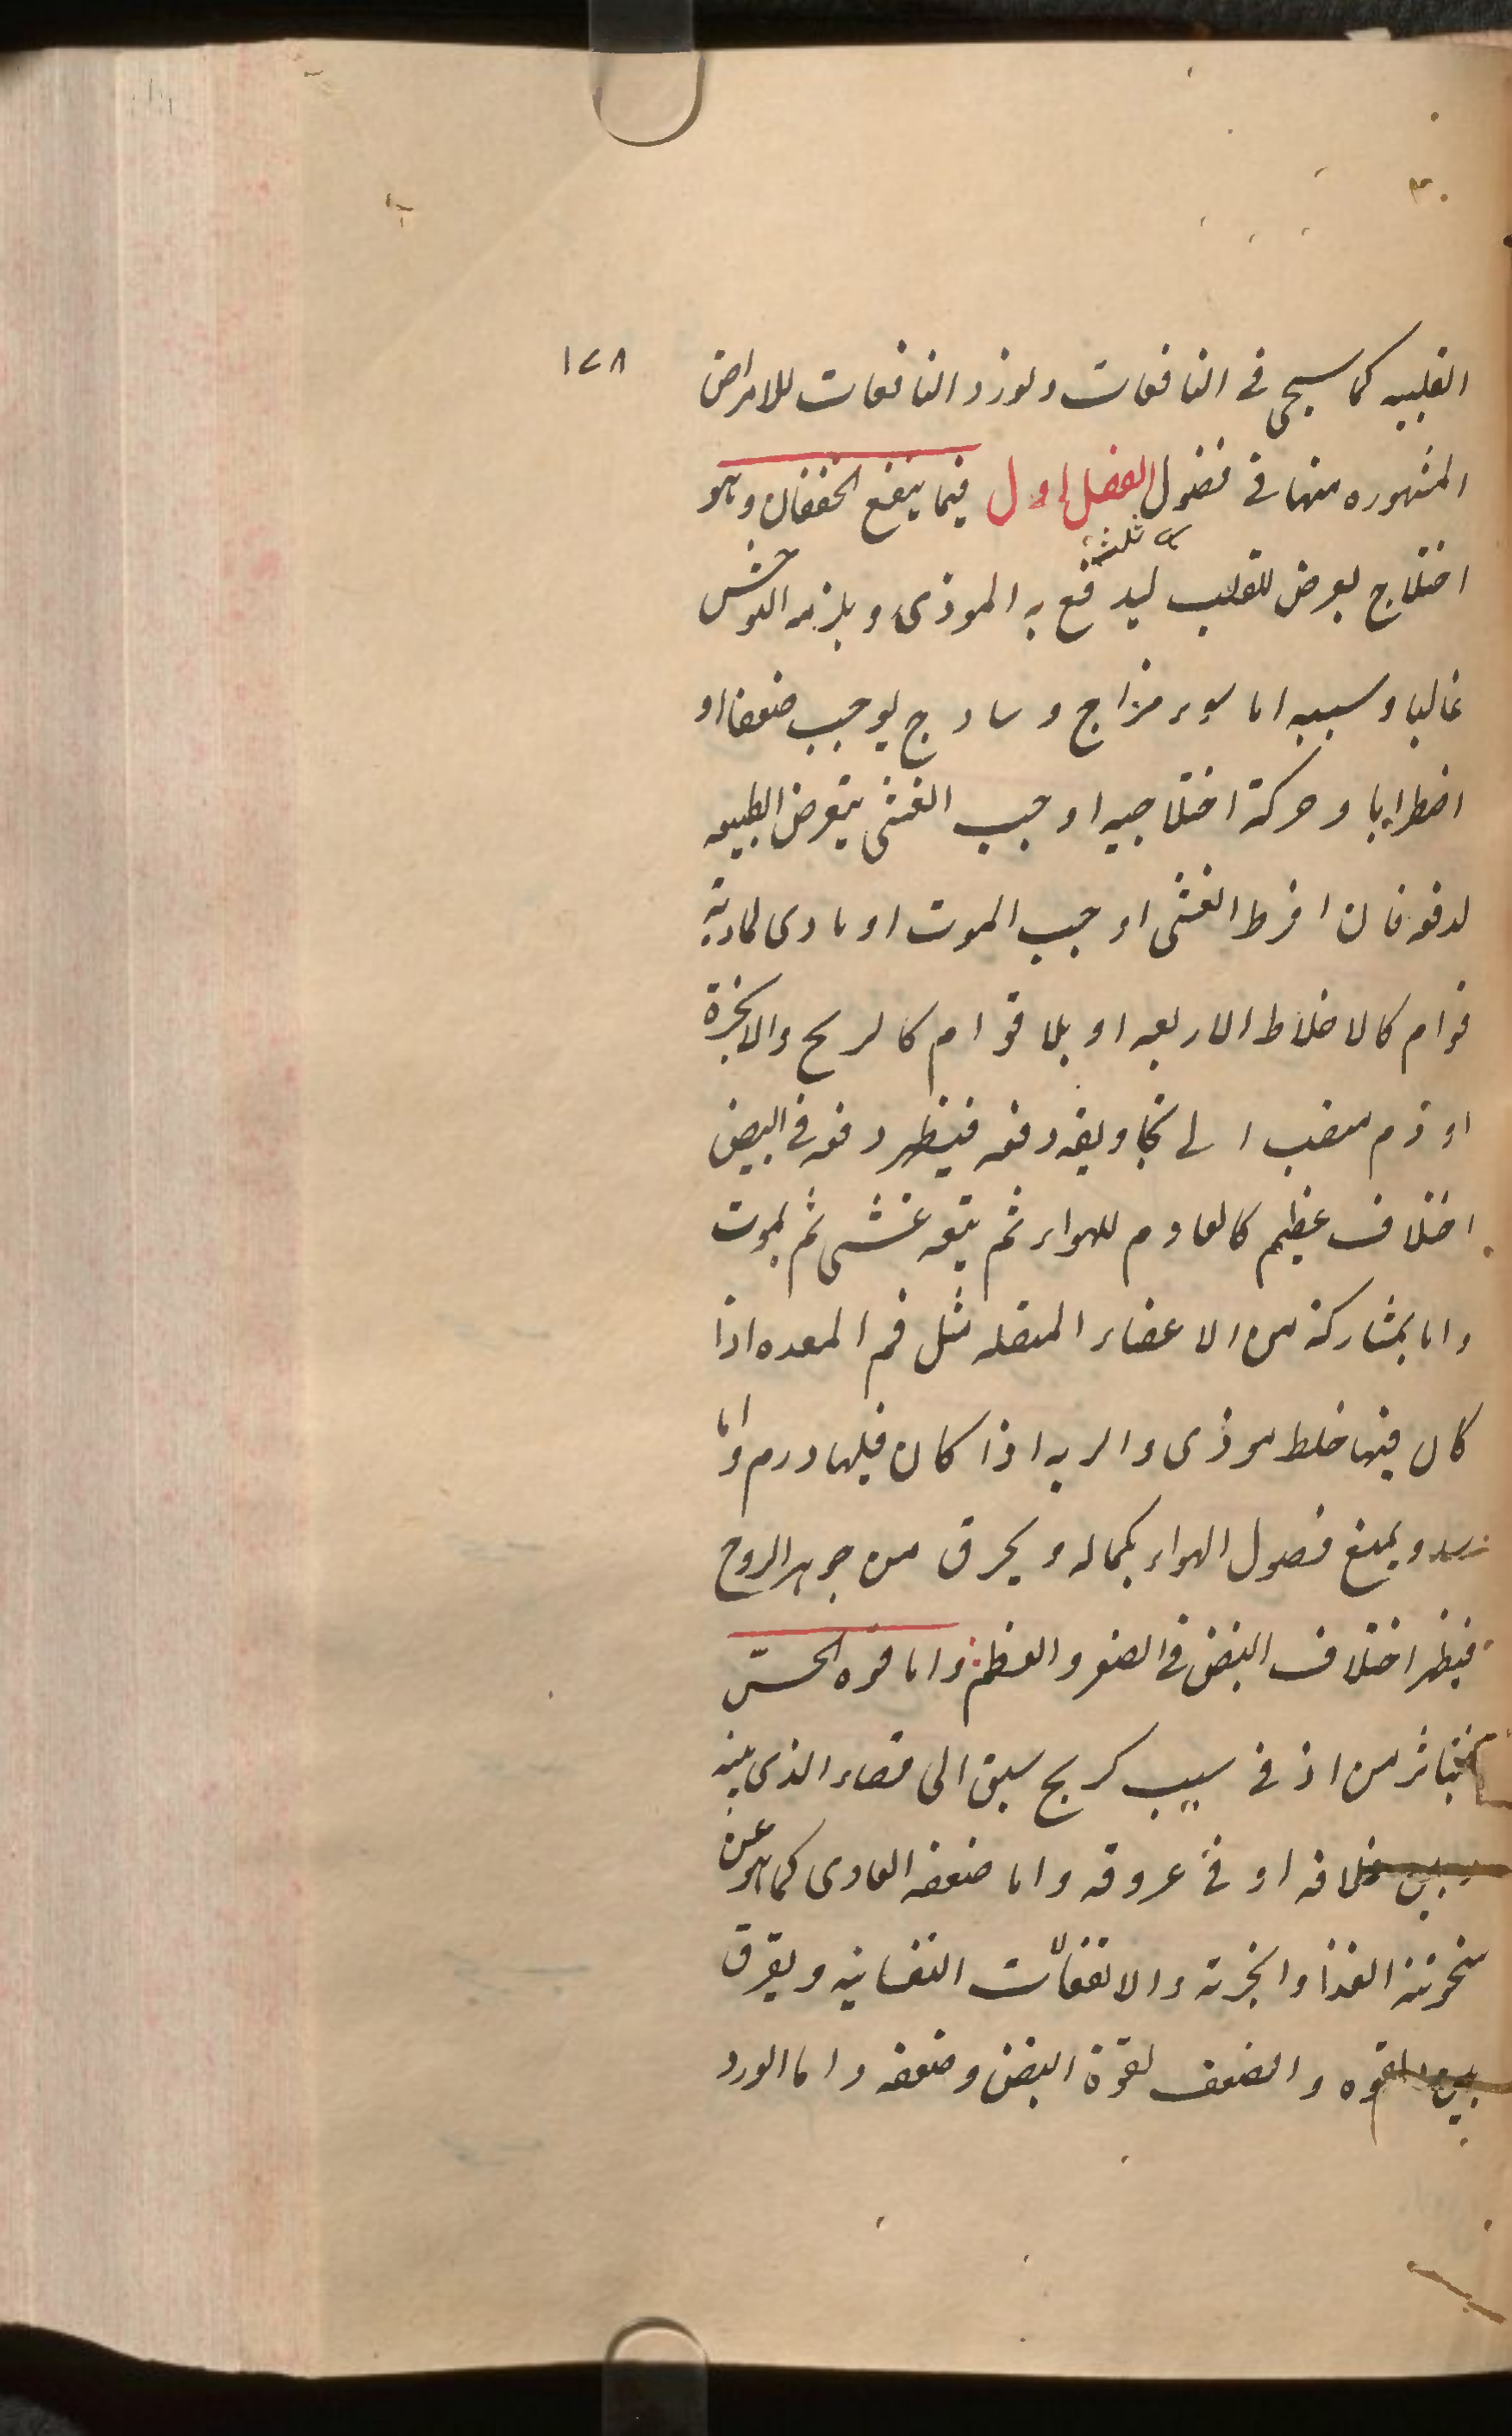 ١٧٨
القلبيه كما سيجى فى النافعات ونورد النافعات للامراض
المشهوره منها فى فصول الفصل اول فيما ينفع الخفقان وهو
ثلثه
اختلاج يعرض للقلب ليدفع به الموذى ويلزمه التوحش
غالبا وسببه اما سوء مزاج وسادج يوجب ضعفا او
اضطرابا وحركة اختلاجيه اوجب الغشى يتعرض الطبيعه
لدفعه فان افرط الغشى اوجب الموت او مادى لمادية
قوام كالاخلاط الاربعه او بلا قوام كالريح والابخرة
او دم منصب الى تجاويفه دفعه فيظهر دفعه فى النبض
اختلاف عظيم كالعادم للهواء ثم يتبعه غشى ثم يموت
واما بمشاركة من الاعضاء المتصله مثل فم المعده اذا
كان فيها خلط موذى والريه اذا كان فيها ورم واما
سدد ويمنع فصول الهواء بكماله ويحرق من جوهر الروح
فيظهر اختلاف النبض فى الصغر والعظم واما قوه الحسّ
فيتاثر من اذى سبب كريح سبق الى فضاء الذى بينه
وبين غلافه او فى عروقه واما ضعفه العادى كما هو عن
سخونته الغذا وابخرته والانفعالات النفسانيه ويفرق
بين القوه والضعف لقوة النبض وضعفه واما الورد